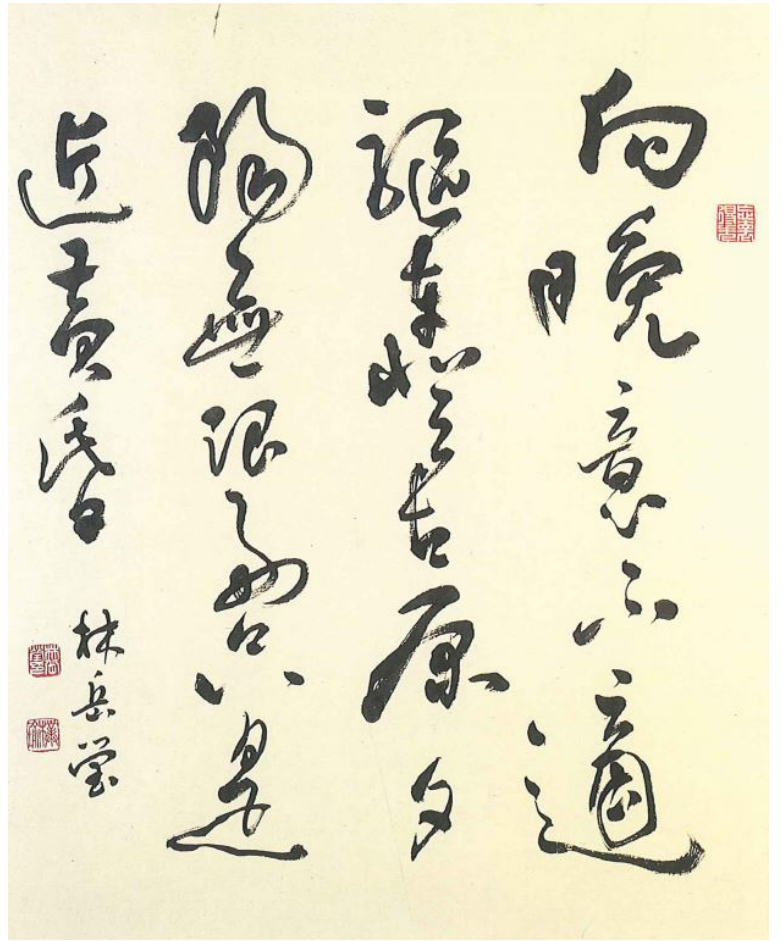 向晚意不適
驅車登古原夕
陽無限好只是
近黃昏
林岳瑩